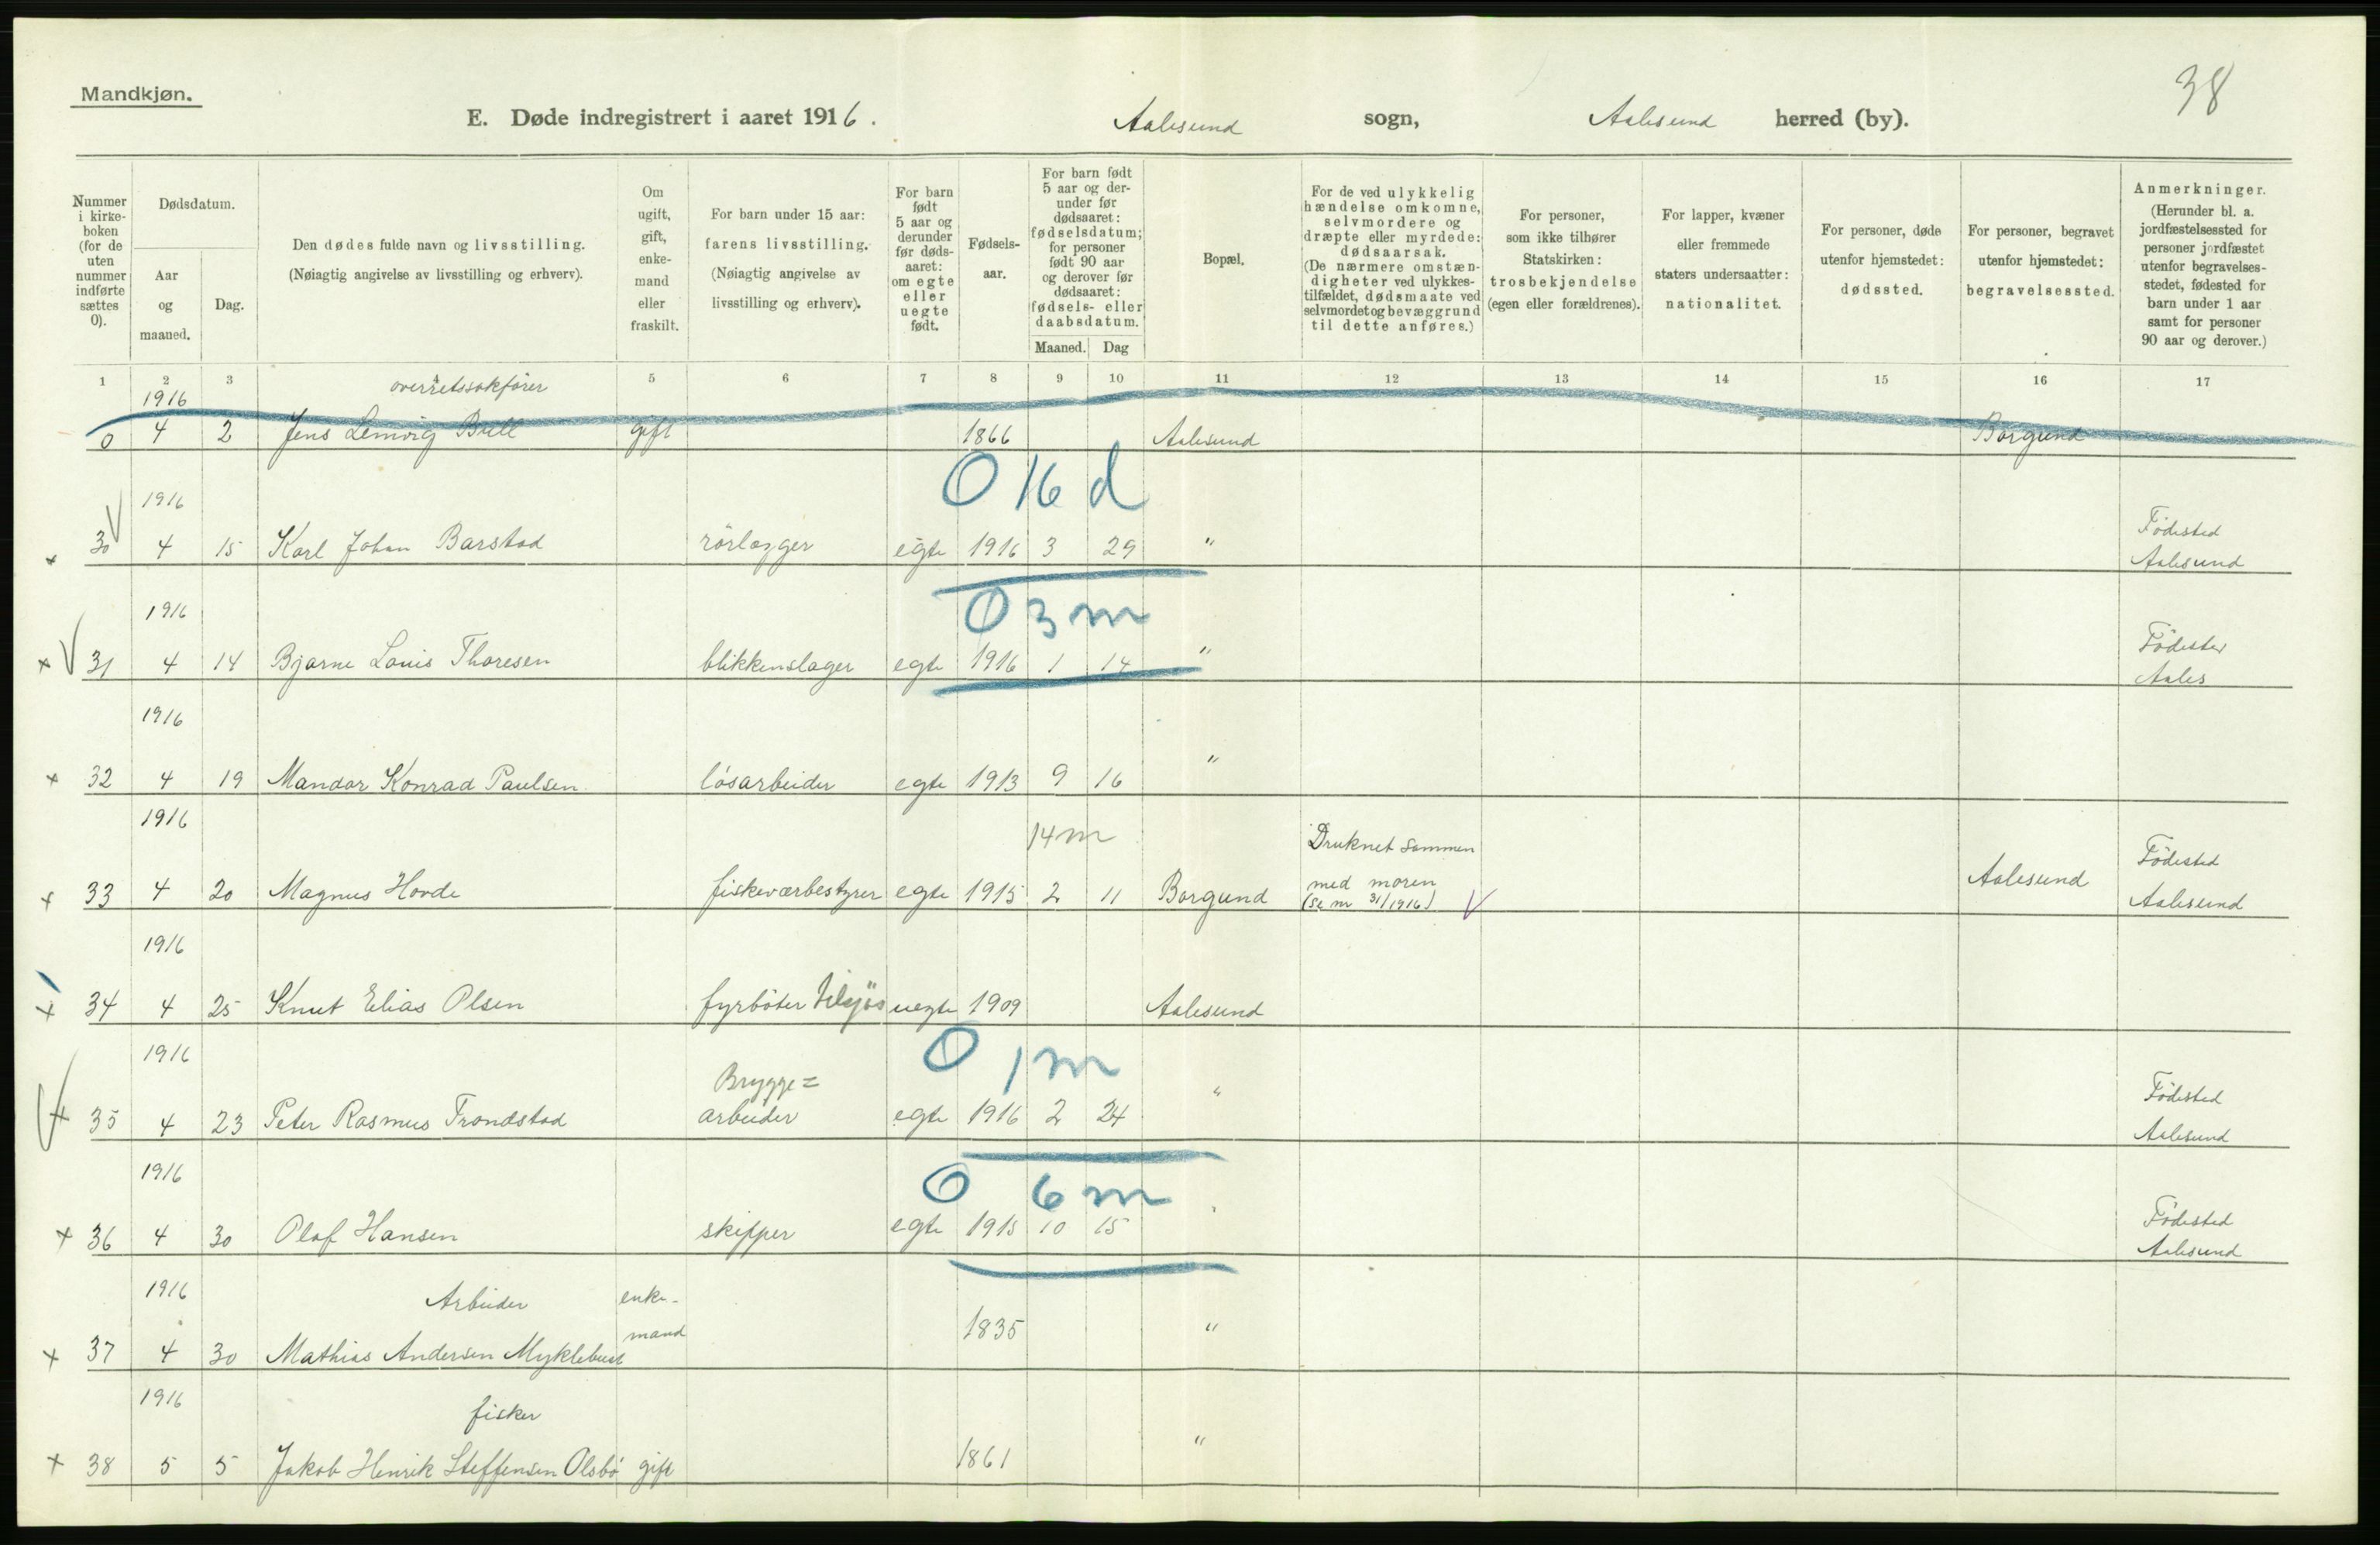 Mandkjøn.
38
E. Døde indregistrert i aaret 1916. Aalesund sogn, Aalesund herred (by).
Nummer i kirke- boken (for de uten nummer indførte sættes 0).
Dødsdatum.
Aar og maaned.
Dag.
Den dødes fulde navn og livsstilling.
(Nøiagtig angivelse av livsstilling og erhverv).
Om ugift, gift, enke- mand eller fraskilt.
For barn under 15 aar: farens livsstilling. (Nøiagtig angivelse av livsstilling og erhverv).
For barn født 5 aar og derunder før døds- aaret: om egte eller uegte født.
Fødsels- aar.
For barn født 5 aar og der- under før dødsaaret: fødselsdatum; for personer født 90 aar og derover før dødsaaret: fødsels- eller daabsdatum.
Maaned. Dag
Bopæl.
For de ved ulykkelig hændelse omkomne, selvmordere og dræpte eller myrdede: dødsaarsak. (De nærmere omstæn- digheter ved ulykkes- tilfældet, dødsmaate ved selvmordet og bevæggrund til dette anføres.)
For personer, som ikke tilhører Statskirken: trosbekjendelse (egen eller forældrenes).
For lapper, kvæner eller fremmede staters undersaatter: nationalitet.
For personer, døde utenfor hjemstedet: dødssted.
For personer, begravet utenfor hjemstedet: begravelsessted.
Anmerkninger. (Herunder bl. a. jordfæstelsessted for personer jordfæstet utenfor begravelses- stedet, fødested for barn under 1 aar samt for personer 90 aar og derover.)
1 2 3 4 5 6 7 8 9 10 11 12 13 14 15 16 17
1916 overretssakfører
0 4 2 Jens Lemvig Bull gift 1866 Aalesund Borgund
0 16 d
1916 Födested
30 4 15 Karl Johan Barstad rörlægger egte 1916 3 29 " Aalesund
0 3 m
1916 Födested
31 4 14 Bjarne Louis Thoresen blikkenslager egte 1916 1 14 " Aales
1916
32 4 19 Mandor Konrad Paulsen lösarbeider egte 1913 9 16 "
1916 14 m Druknet sammen Födested
33 4 20 Magnus Hovde fiskeværbestyrer egte 1915 2 11 Borgund med moren (se nr 31/1916) Aalesund Aalesund
1916
34 4 25 Knut Elias Olsen fyrböter tilsjös uegte 1909 Aalesund
0 1 m
1916 Brygge= Födested
35 4 23 Peter Rasmus Trondstad arbeider egte 1916 2 24 " Aalesund
0 6 m
1916 Födested
36 4 30 Olaf Hansen skipper egte 1915 10 15 " Aalesund
1916 Arbeider enke-
37 4 30 Mathias Andersen Myklebust mand 1835 "
1916 fisker
38 5 5 Jakob Henrik Steffensen Olsbö gift 1861 "